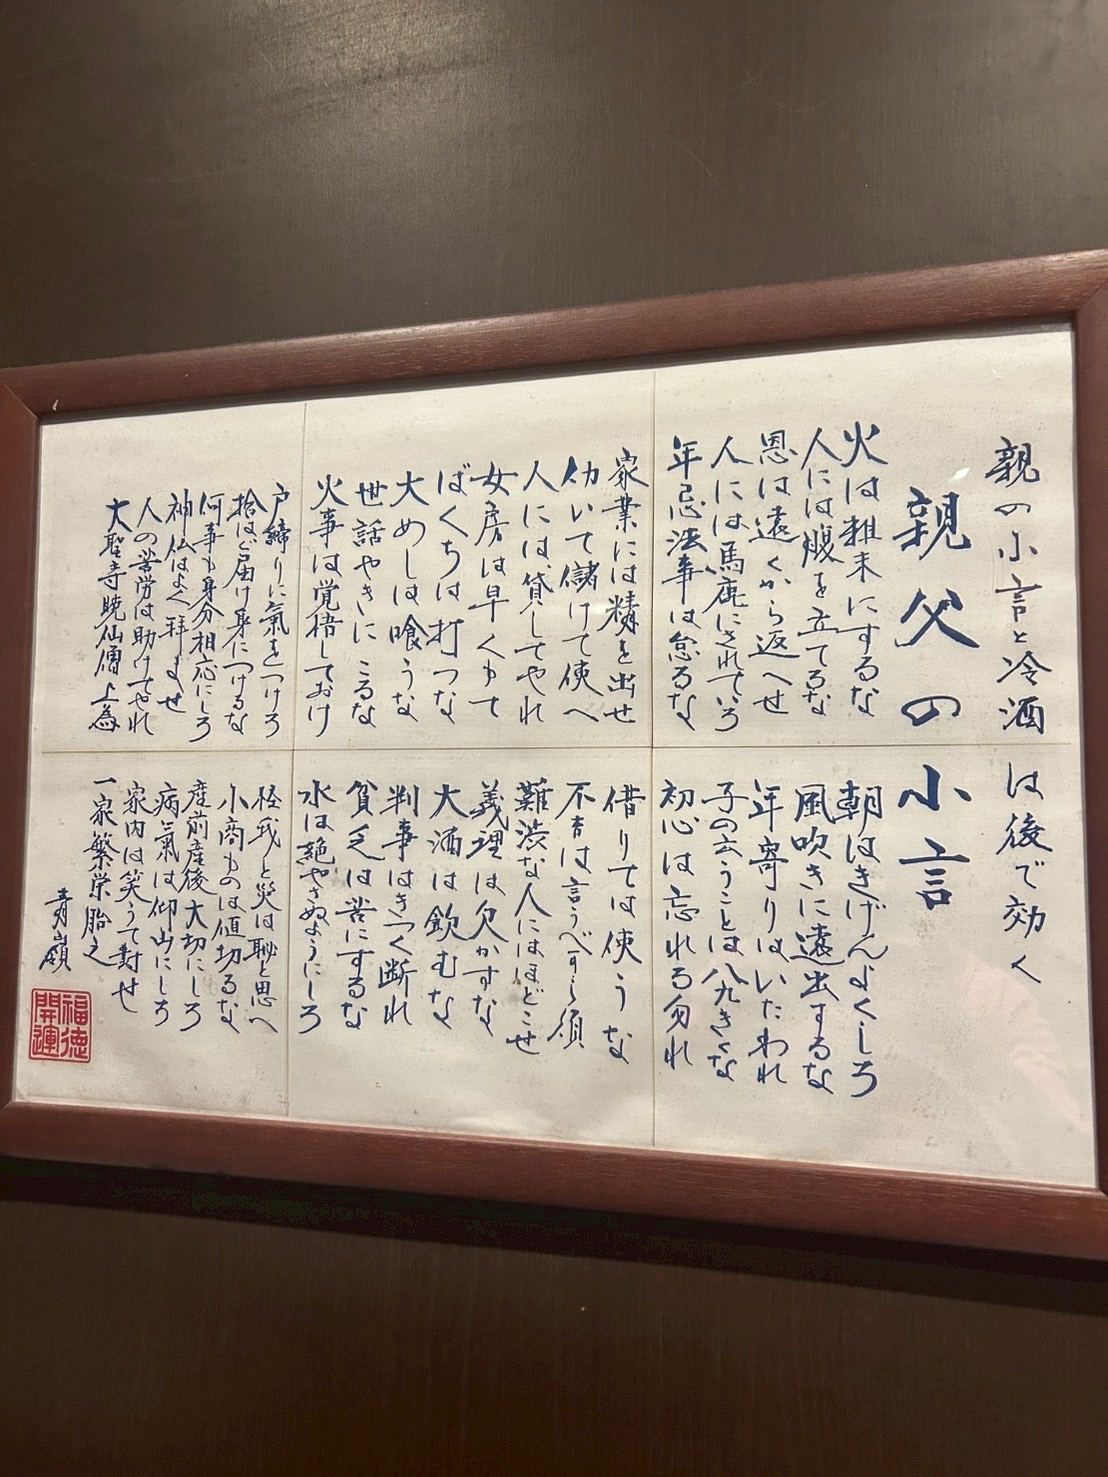 親の小言と冷酒は後で効く
親父の小言
火は粗末にするな
朝はきげんよくしろ
人には腹を立てるな
風吹きに遠出するな
恩は遠くから返へせ
年寄りはいたわれ
人には馬鹿にされていろ
子の云うことは八九きくな
年忌法事は怠るな
初心は忘れる勿れ
家業には精を出せ
借りては使うな
仂いて儲けて使へ
不吉は言うべすら須
人には貸してやれ
難渋な人にはほどこせ
女房は早くもて
義理は欠かすな
ばくちは打つな
大酒は飲むな
大めしは喰うな
判事はきつく断れ
世話やきにこるな
貧乏は苦にするな
火事は覚悟しておけ
水は絶やさぬようにしろ
戸締りに氣をつけろ
怪我と災は恥と思へ
拾はど届け身につけるな
小商もの値切るな
何事も身分相応にしろ
産前産後大切にしろ
神仏はよく拝ませ
病氣は仰山にしろ
人の苦労は助けてやれ
家内は笑うて封せ
大聖寺暁仙僧上為
一家繁栄胎之
青嶺
福徳
開運